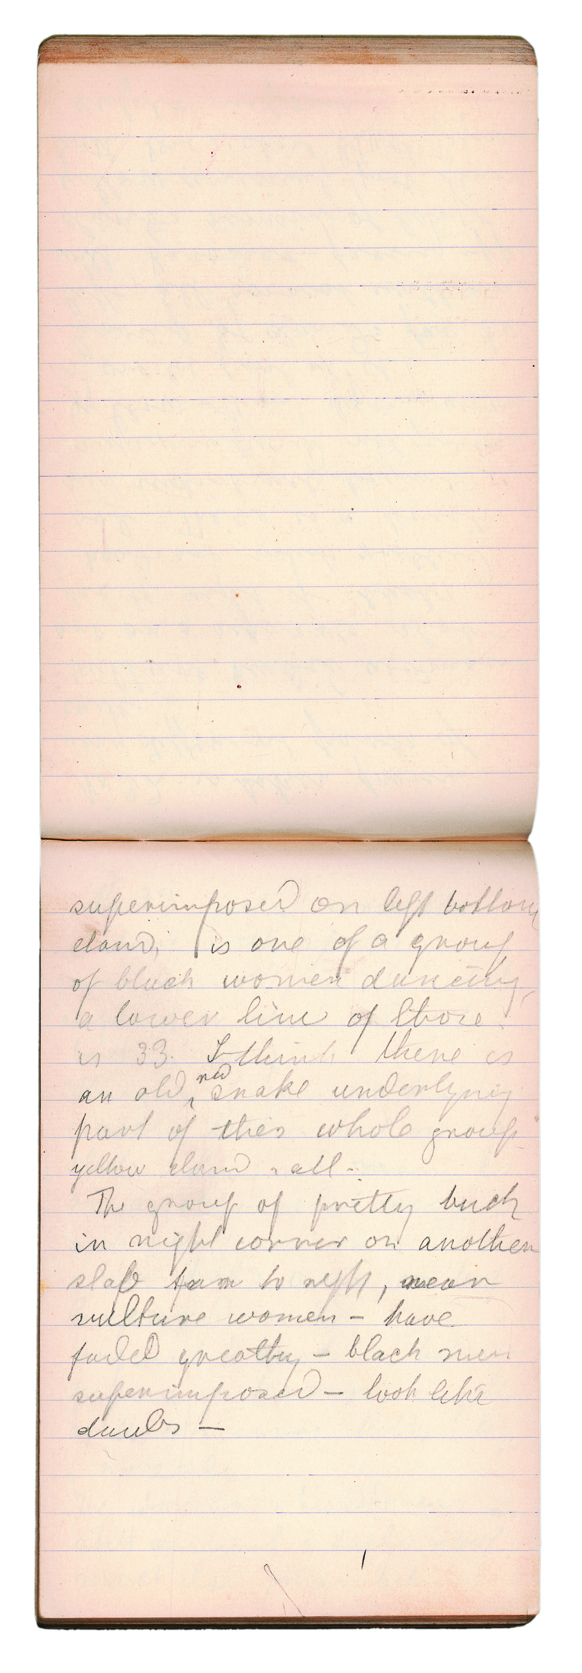 superimposed on left bottom
eland, is one of a group
of black women dancing,
a lower line of those
is 33. I think there is
an old red snake underlying
part of this whole group
yellow eland & all -
The group of pretty buck
in right corner on another
slab to right, near
vulture women - have
faded greatly - black men
superimposed - look like
daubs -